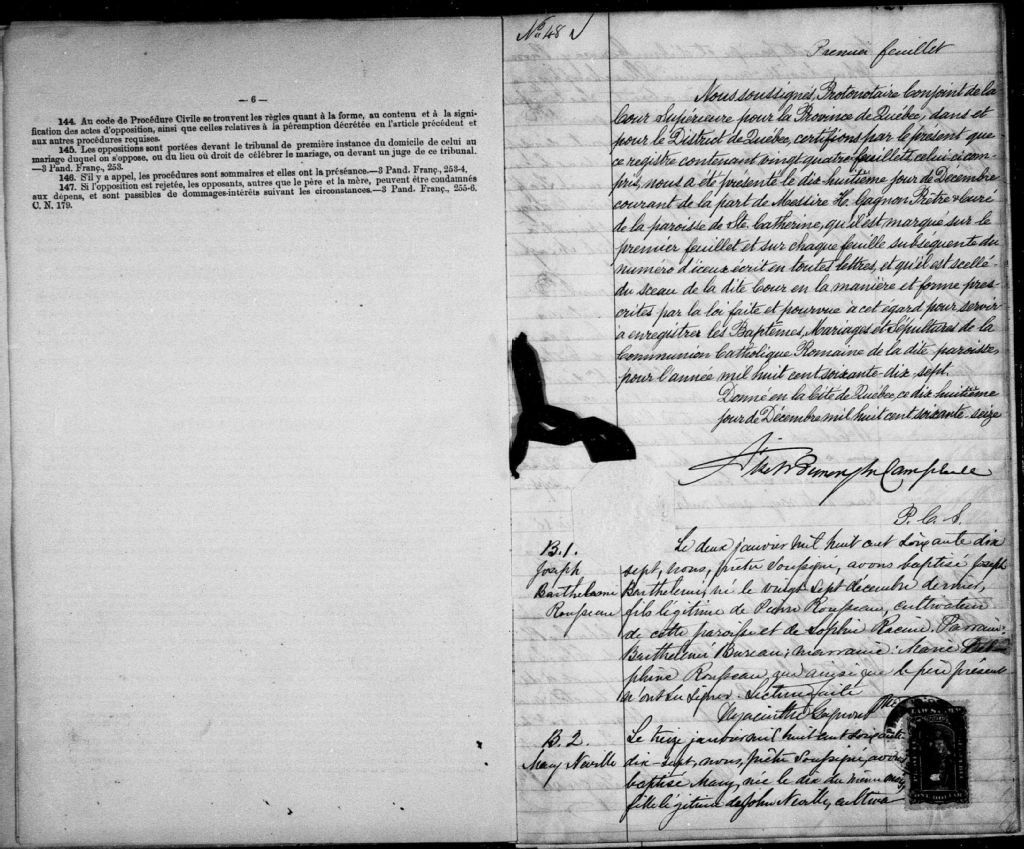 — 6 —
144. Au code de Procédure Civile se trouvent les règles quant à la forme, au contenu et à la signi-
fication des actes d'opposition, ainsi que celles relatives à la péremption décrétée en l'article précédent et
aux autres procédures requises.
145. Les oppositions sont portées devant le tribunal de première instance du domicile de celui au
mariage duquel on s'oppose, ou du lieu où droit de célébrer le mariage, ou devant un juge de ce tribunal.
—3 Pand. Franç., 253.
146. S'il y a appel, les procédures sont sommaires et elles ont la préséance.—3 Pand. Franç., 253-4.
147. Si l'opposition est rejetée, les opposants, autres que le père et la mère, peuvent être condamnés
aux dépens, et sont passibles de dommages-intérêts suivant les circonstances.—3 Pand. Franç., 255-6.
C. N. 179.
No. 48
Premier feuillet
Nous soussignés, Protonotaire Conjoint de la
Cour Supérieure pour la Province de Québec, dans et
pour le District de Québec, certifions par le présent que
ce registre contenant vingt quatre feuillets, celui ci com-
pris, nous a été présenté le dix-huitième jour de Décembre
courant de la part de Messire H. Gagnon Prêtre & Curé
de la paroisse de Ste. Catherine, qu'il est marqué sur le
premier feuillet et sur chaque feuille subséquente du
numéro d'iceux écrit en toutes lettres, et qu'il est scellé
du sceau de la dite Cour en la manière et forme pres-
crites par la loi faite et pourvue à cet égard pour servir
à enregistrer les Baptêmes, Mariages et Sépultures de la
Communion Catholique Romaine de la dite paroisse,
pour l'année mil huit cent soixante-dix-sept.
Donné en la Cité de Québec, ce dix-huitième
jour de Décembre mil huit cent soixante-seize
Campbell
P. C. S.
B. 1.
Joseph
Barthelemi
Rousseau
Le deux janvier mil huit cent soixante dix
sept, nous, prêtre soussigné, avons baptisé Joseph
Barthelemi, né le vingt sept décembre dernier,
fils légitime de Pierre Rousseau, cultivateur
de cette paroisse et de Sophie Racine. Parrain:
Barthelemi Bureau; marraine: Marie Del-
phine Rousseau, qui ainsi que le père présent
n'ont su signer. Lecture faite
Hyacinthe Gagnon Ptre
B. 2.
Mary Neville
Le treize janvier mil huit cent soixante
dix-sept, nous, prêtre soussigné, avons
baptisé Mary, née le dix du même mois,
fille légitime de John Neville, cultiva-
ONE DOLLAR